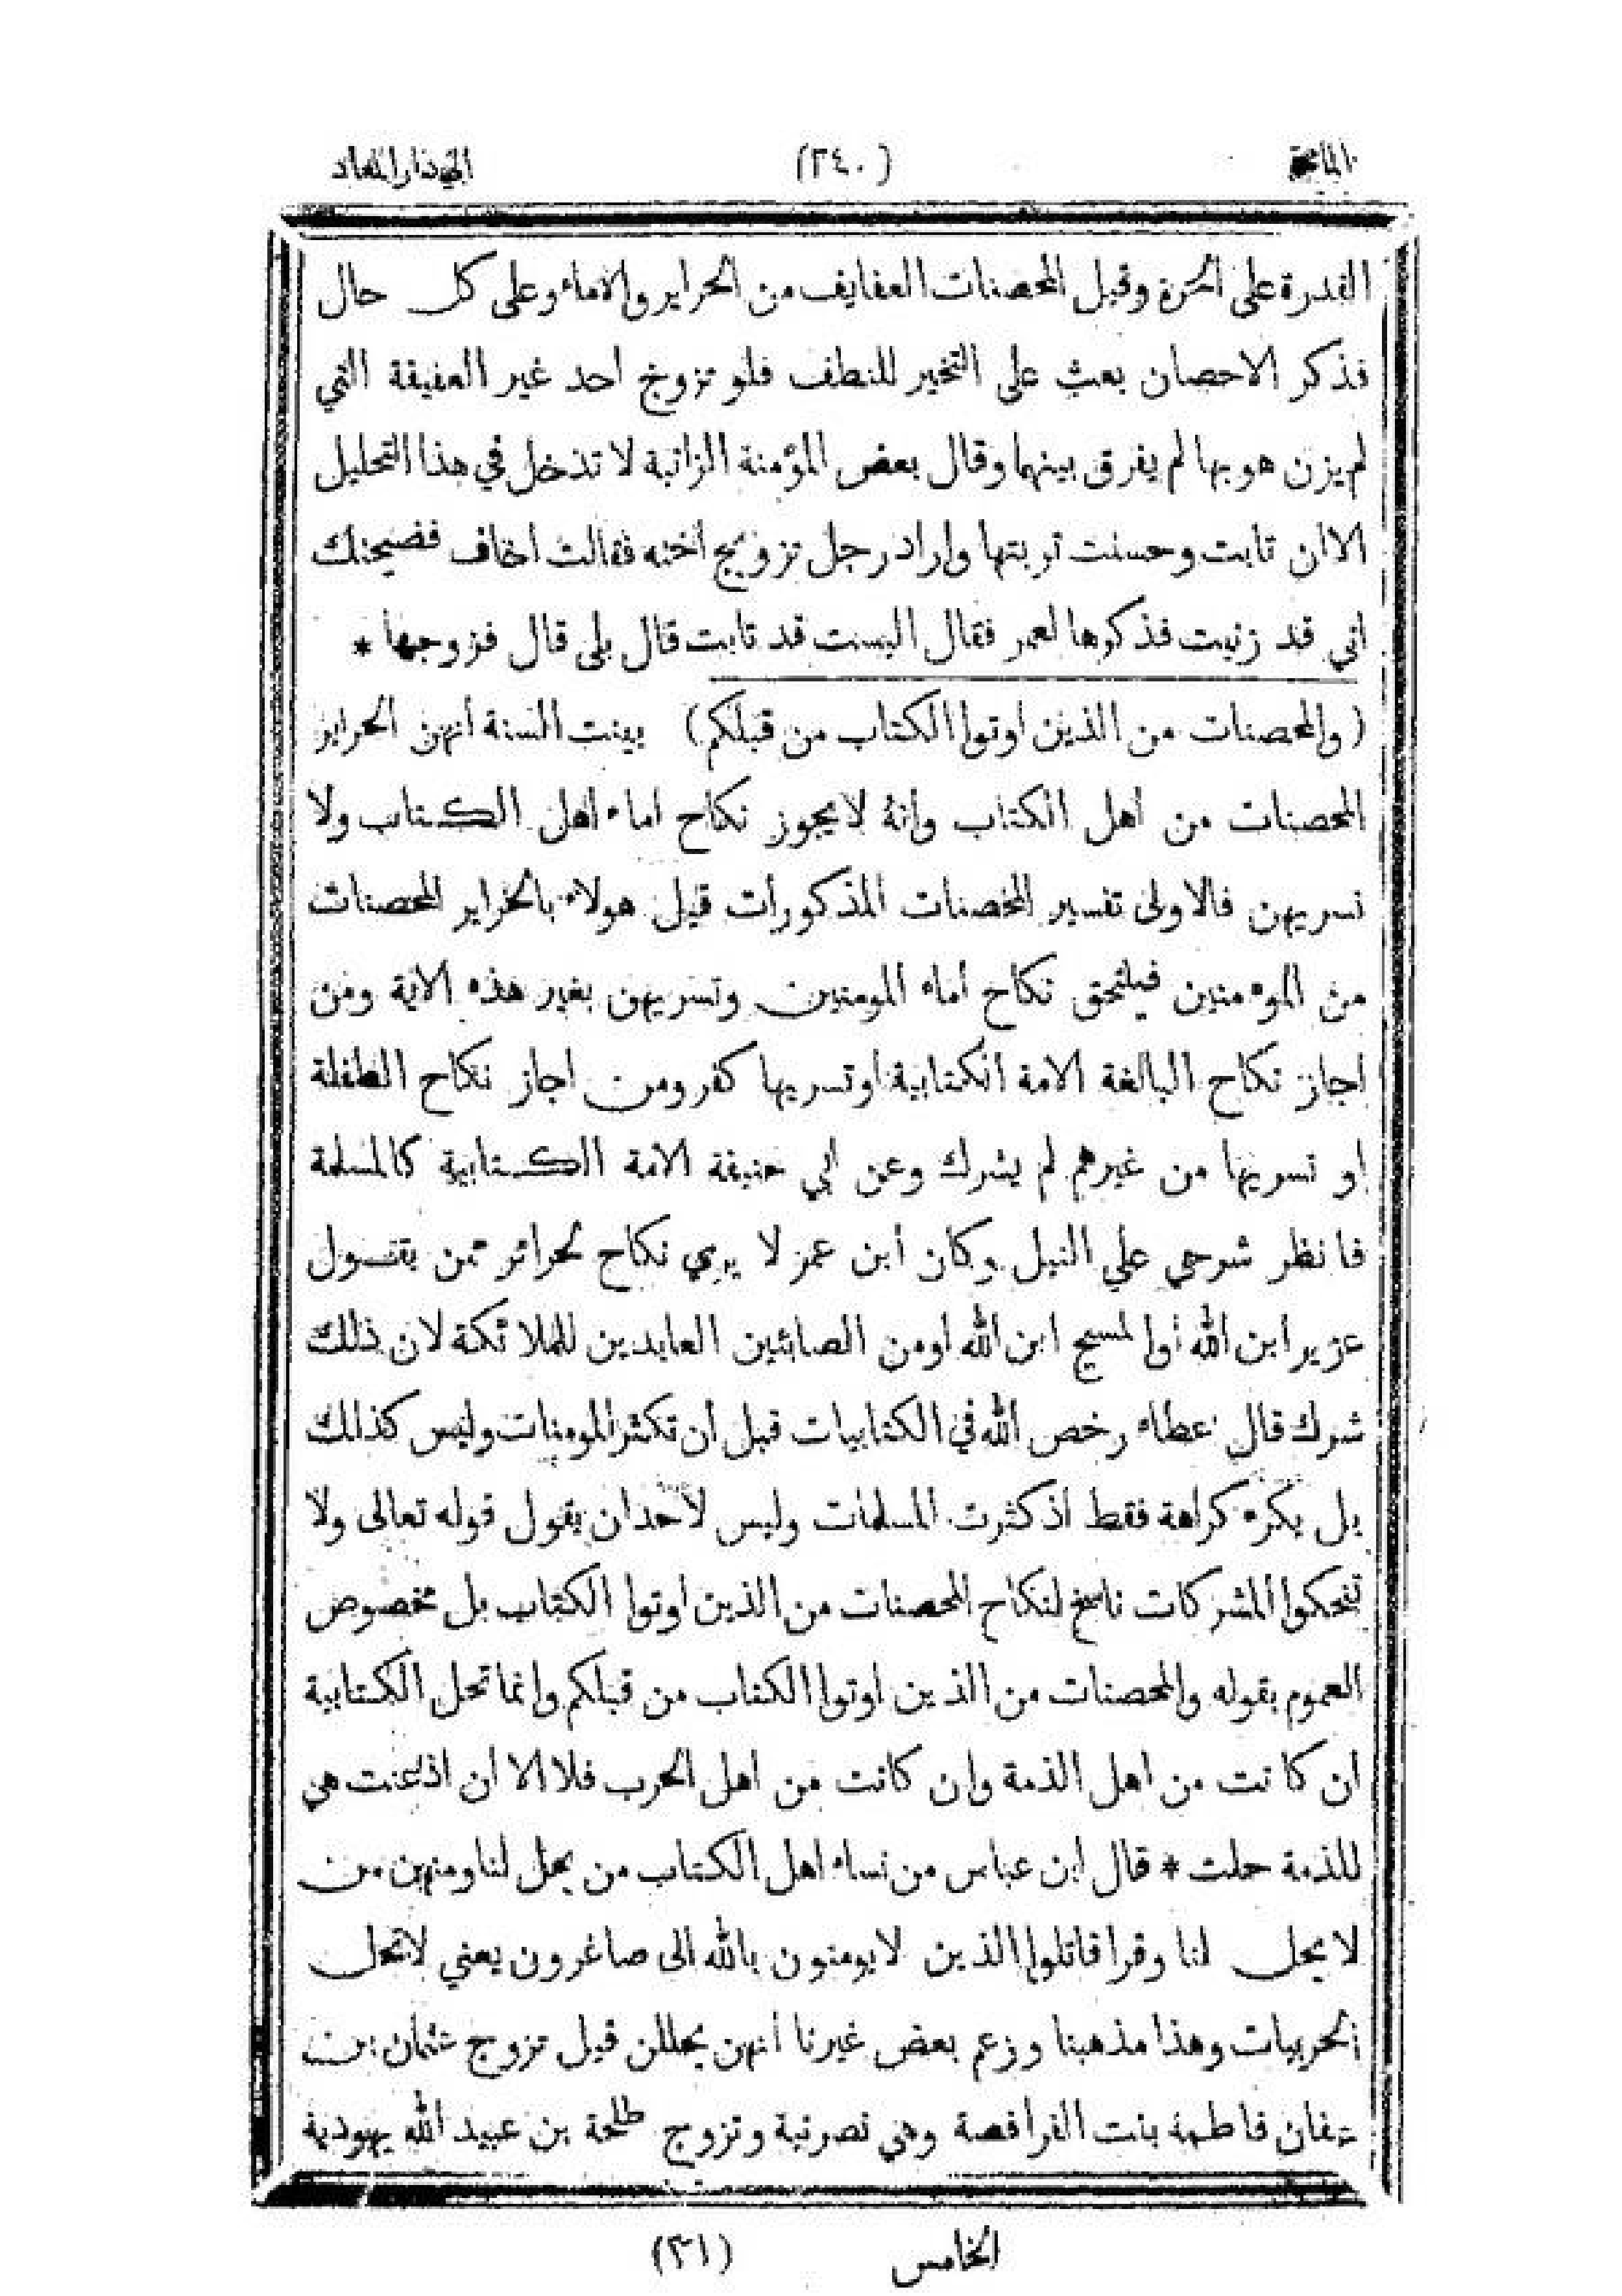 المائدة (٢٤٠) الى دار المعاد
القدرة على الحرة وقيل المحصنات العفايف من الحراير والاماء وعلى كل حال
فذكر الاحصان بعث على التخير للنطف فلو تزوج احد غير العفيفة التي
لم يزن هو بها لم يفرق بينهما وقال بعض المؤمنة الزانية لا تدخل في هذا التحليل
الا ان تابت وحسنت توبتها واراد رجل تزويج اخته فقالت اخاف فضيحتك
اني قد زنيت فذكرها لعمر فقال اليست قد تابت قال بلى قال فزوجها *
(والمحصنات من الذين اوتوا الكتاب من قبلكم) بينت السنة انهن الحراير
المحصنات من اهل الكتاب وانه لا يجوز نكاح اماء اهل الكتاب ولا
تسريهن فالاولى تفسير المحصنات المذكورات قبل هولاء بالحراير المحصنات
من الموءمنين فيلتحق نكاح اماء المومنين وتسريهن بغير هذه الاية ومن
اجاز نكاح البالغة الامة الكتابية او تسريها كفر ومن اجاز نكاح الطفلة
او تسريها من غيرهم لم يشرك وعن ابي حنيفة الامة الكتابية كالمسلمة
فانظر شرحي علي النيل وكان ابن عمر لا يري نكاح لحرائر ممن يقول
عزير ابن الله أوا لمسيح ابن الله او من الصابئين العابدين للملائكة لان ذلك
شرك قال عطاء رخص الله في الكتابيات قبل ان تكثر المومنات وليس كذالك
بل يكره كراهة فقط اذ كثرت المسلمات وليس لأحد ان يقول قوله تعالى ولا
تنحكوا المشركات ناسخ لنكاح المحصنات من الذين اوتوا الكتاب بل مخصوص
العموم بقوله والمحصنات من الذين اوتوا الكتاب من قبلكم وانما تحل الكتابية
ان كانت من اهل الذمة وان كانت من اهل الحرب فلا الا ان اذعنت هي
للذمة حلت * قال ابن عباس من نساء اهل الكتاب من يحل لنا ومنهن من
لا يحل لنا وقرا قاتلوا الذين لا يومنون بالله الى صاغرون يعني لا تحل
الحربيات وهذا مذهبنا وزعم بعض غيرنا انهن يحللن قيل تزوج عثمان بن
عفان فاطمة بنت الفرافصة وهي نصرنية وتزوج طلحة بن عبيد الله يهودية
الخامس (٣١)